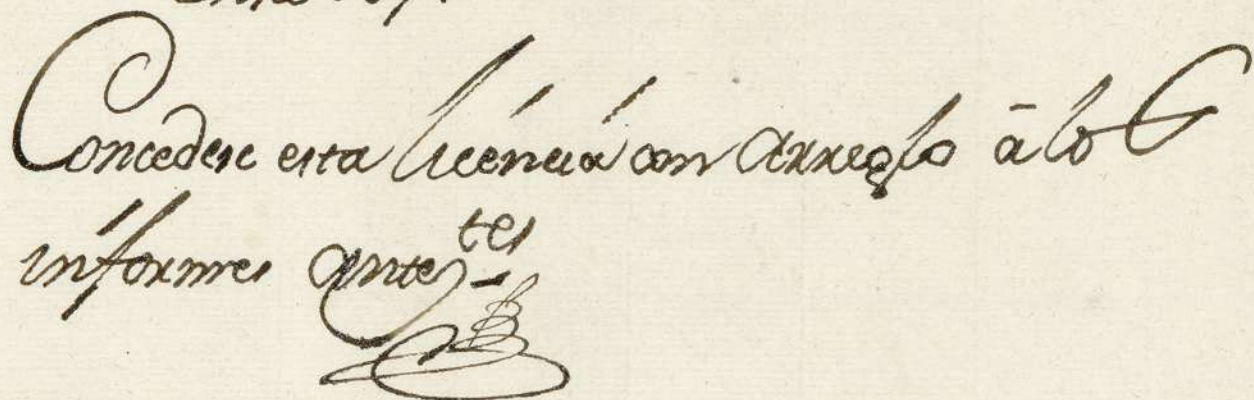 Concedese esta licencia con Arreglo â los
informes antec^tes